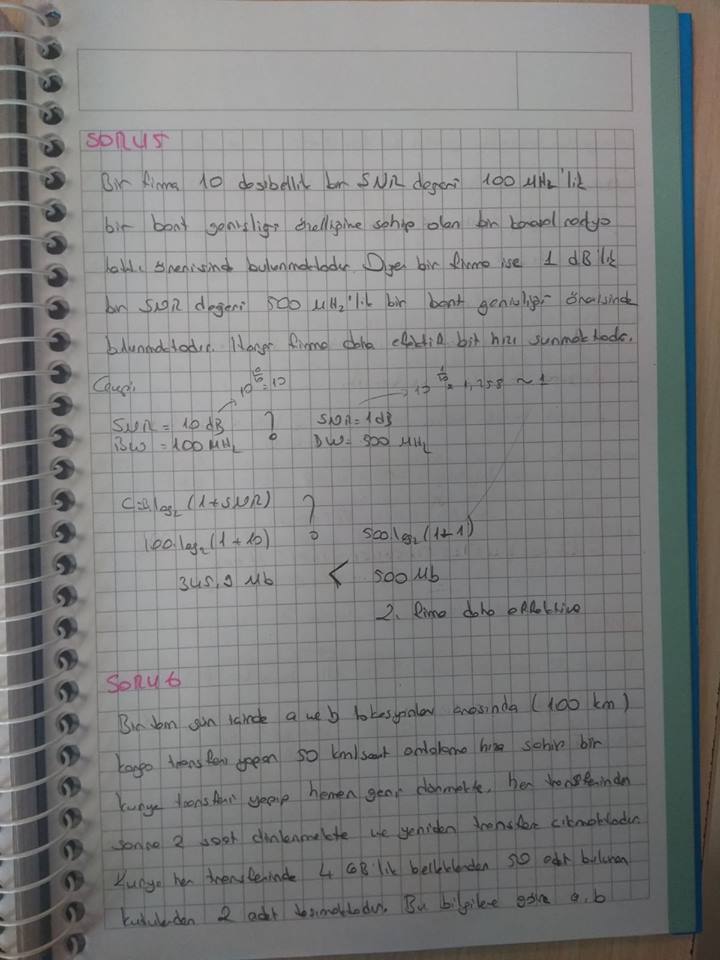 SORU 5
Bir firma 10 desibellik bir SNR degeri 100 MHz'lik
bir bant genisligi özelligine sahip olan bir karasal radyo
bulunmaktadır. Diger bir firma ise 1 dB'lik
bir SNR degeri 500 MHz'lik bir bant genisligi önerisinde
bulunmaktadır. Hangi firma daha efektif bit hızı sunmaktadır.
Cevap:
10^10/10 = 10
10^1/10 = 1,258 ~ 1
SNR = 10 dB ? SNR = 1dB
BW = 100 MHz BW = 500 MHz
C=B.log2 (1+SNR) ?
100.log2 (1+10) 500.log2 (1+1)
345,9 Mb < 500 Mb
2. firma daha effektive
SORU 6
Bir tam gün icinde a ve b lokasyonları arasında (100 km)
kargo transferi yapan 50 km/saat ortalama hıza sahip bir
kurye transferi yapıp hemen geri dönmekte, her transferinden
sonra 2 saat dinlenmekte ve yeniden transfere cıkmaktadır.
Kurye her transferinde 4 GB'lik belleklerden 50 adet bulunan
kutulardan 2 adet tasımaktadır. Bu bilgilere göre a, b